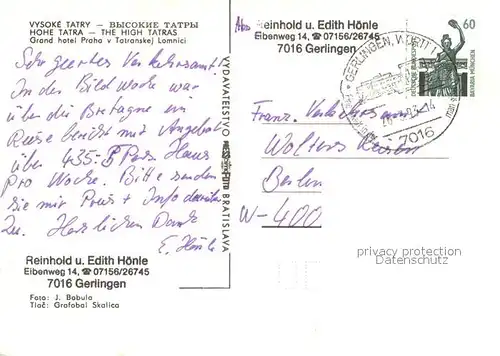 VYSOKÉ TATRY – ВЫСОКИЕ ТАТРЫ
HOHE TATRA – THE HIGH TATRAS
Grand hotel Praha v Tatranskej Lomnici
Sehr geertes Verkehrsamt!
In der Bild Woche war
über die Bretagne ein
Reise bericht mit Angebot
über 435.- 5 Pers. Haus
pro Woche. Bitte senden
sie mir Preis + Info darüber
zu. Herzlichen Dank
E. Hönle
Reinhold u. Edith Hönle
Eibenweg 14, ☎ 07156/26745
7016 Gerlingen
Foto: J. Babula
Tlač: Grafobal Skalica
VYDAVATEĽSTVO
BRATISLAVA
Abs
Reinhold u. Edith Hönle
Eibenweg 14, ☎ 07156/26745
7016 Gerlingen
GERLINGEN, WÜRTT 1
7016
60
Franz. Verkehrsamt
Berlin
W-400
privacy protection
Datenschutz